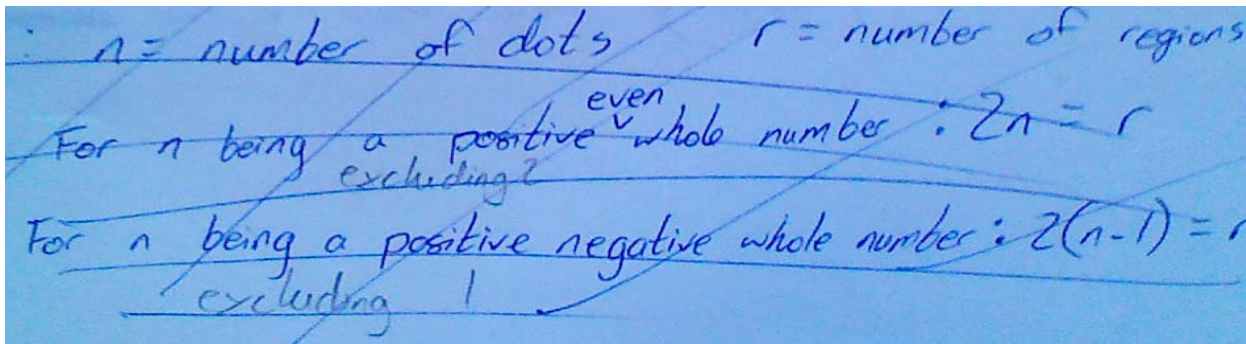 : n = number of dots r = number of regions
For n being a positive even whole number : 2n = r
excluding 2
For n being a positive negative whole number : 2(n-1) = r
excluding 1